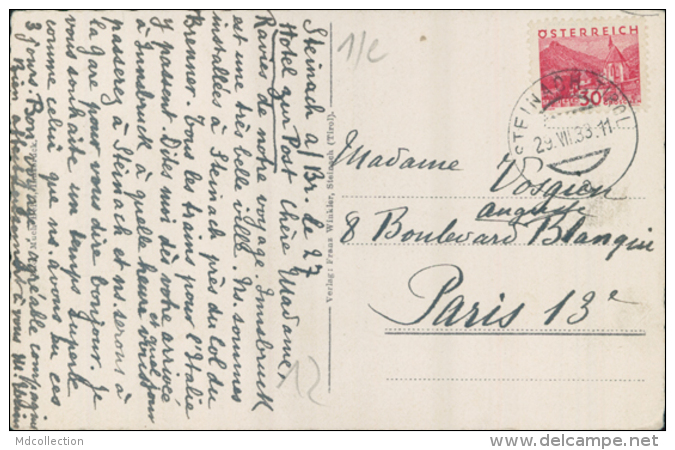 Steinach a/Br. le 27
Hotel zur Post Chère Madame,
Ravies de notre voyage. Innsbruck
est une très belle ville. Ns. sommes
installées à Steinach près du col du
Brenner. Tous les trains pour l'Italie
y passent. Dites moi dès votre arrivée
à Innsbruck à quelle heure et quel jour vous
passerez à Steinach et ns. serons à
la gare pour vous dire bonjour. Je
vous souhaite un temps superbe
comme celui que ns. avons eu ces
3 jours. Bon voyage agréable compagnie
Bien affectueusement à vous
1/c
12
Verlag: Franz Winkler, Steinach (Tirol).
ÖSTERREICH
30
STEINACH TIROL
29.VII.33.11
Madame Vosgien
8 Boulevard Auguste Blanqui
Paris 13e
Mdcollection
www.delcampe.net